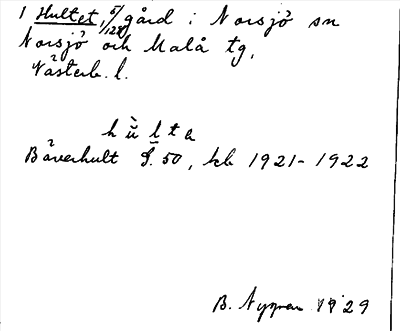 1 Hultet, 5/128 gård i Norsjö sn
Norsjö och Malå tg,
Västerb. l.
hùlta
Bäverhult S. 50, kb 1921-1922
B. Nygren 1929